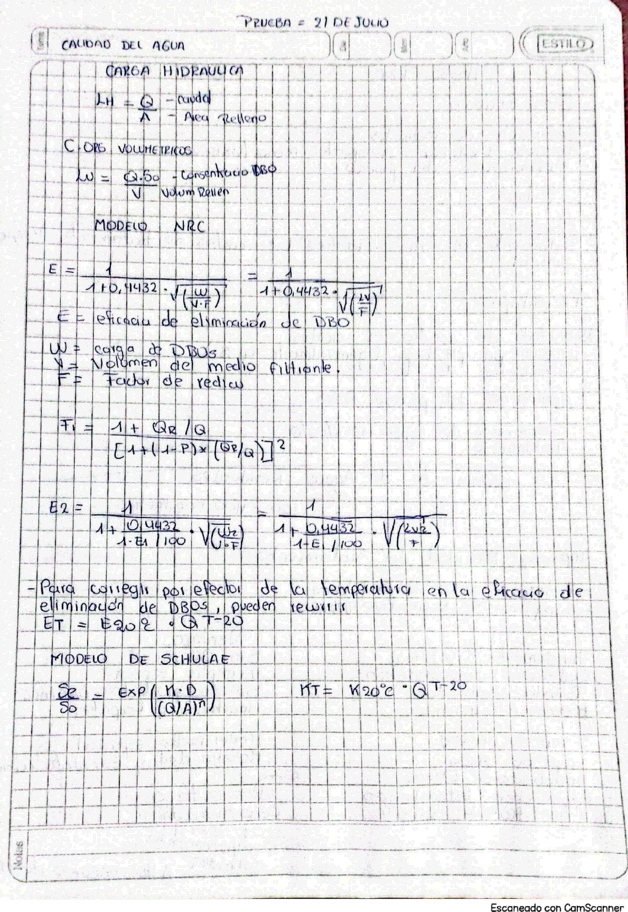 PRUEBA = 21 DE JULIO
CALIDAD DEL AGUA
ESTILO
CARGA HIDRAULICA
LH = Q/A - caudal - Area Relleno
C. ORG VOLUMETRICOS
LV = Q.So/V - consentracio DBO Volum Rellen
MODELO NRC
E = 1/(1+0,4432 · √(W/(V·F))) = 1/(1+0,4432 · √(LV/F))
E = eficacia de eliminación de DBO
W = carga de DBO5
V = Volumen del medio filtrante.
F = Factor de recircu
F1 = (1 + QR/Q)/[1+(1-P)x(QR/Q)]²
E2 = 1/(1 + 0,4432/(1-E1/100) · √(W2/(V·F))) = 1/(1 + 0,4432/(1-E1/100) · √(LV2/F))
- Para corregir por efector de la temperatura en la eficacia de
eliminación de DBO5, pueden recurrir
ET = E20 · Q T-20
MODELO DE SCHULAE
Se/So = EXP(K·D/(Q/A)ⁿ) KT = K20°C · Q T-20
Notas
Escaneado con CamScanner